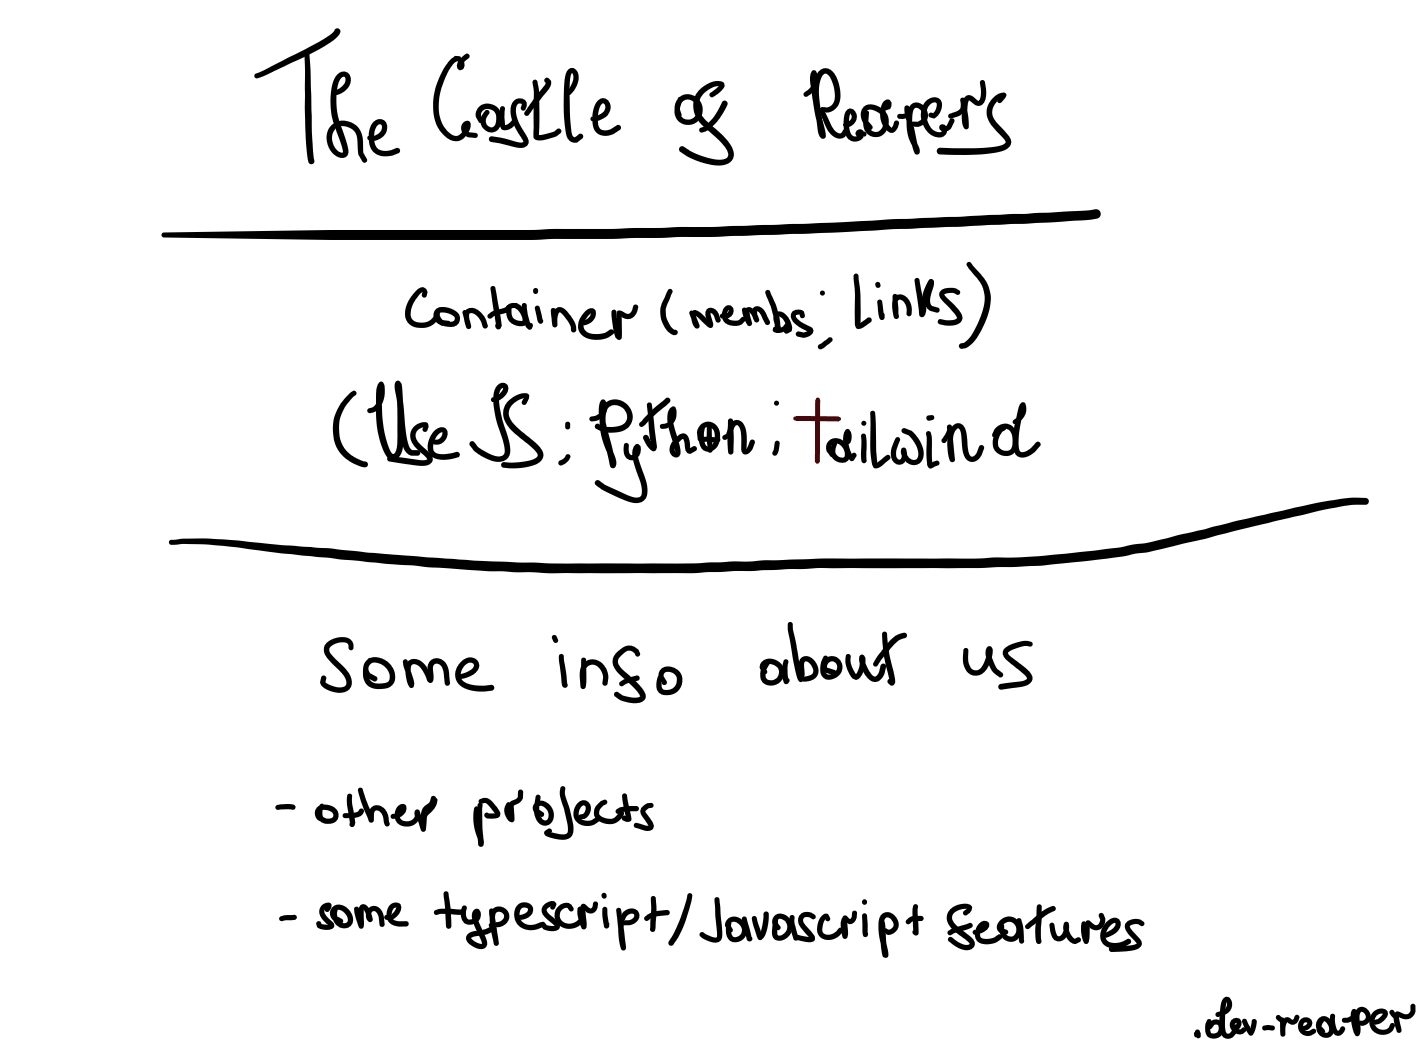 The Castle of Reapers
Container (membs; Links)
(Use JS; Python; tailwind
Some info about us
- other projects
- some typescript/Javascript features
.dev-reaper